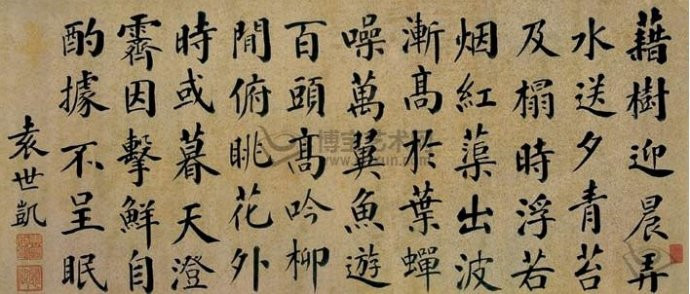 藉樹迎晨弄
水送夕青苔
及榻時浮若
烟紅蕖出波
漸髙於葉蟬
噪萬翼魚遊
百頭髙吟柳
閒俯眺花外
時或暮天澄
霽因擊鮮自
酌據不呈眠
袁世凱
博宝艺术网